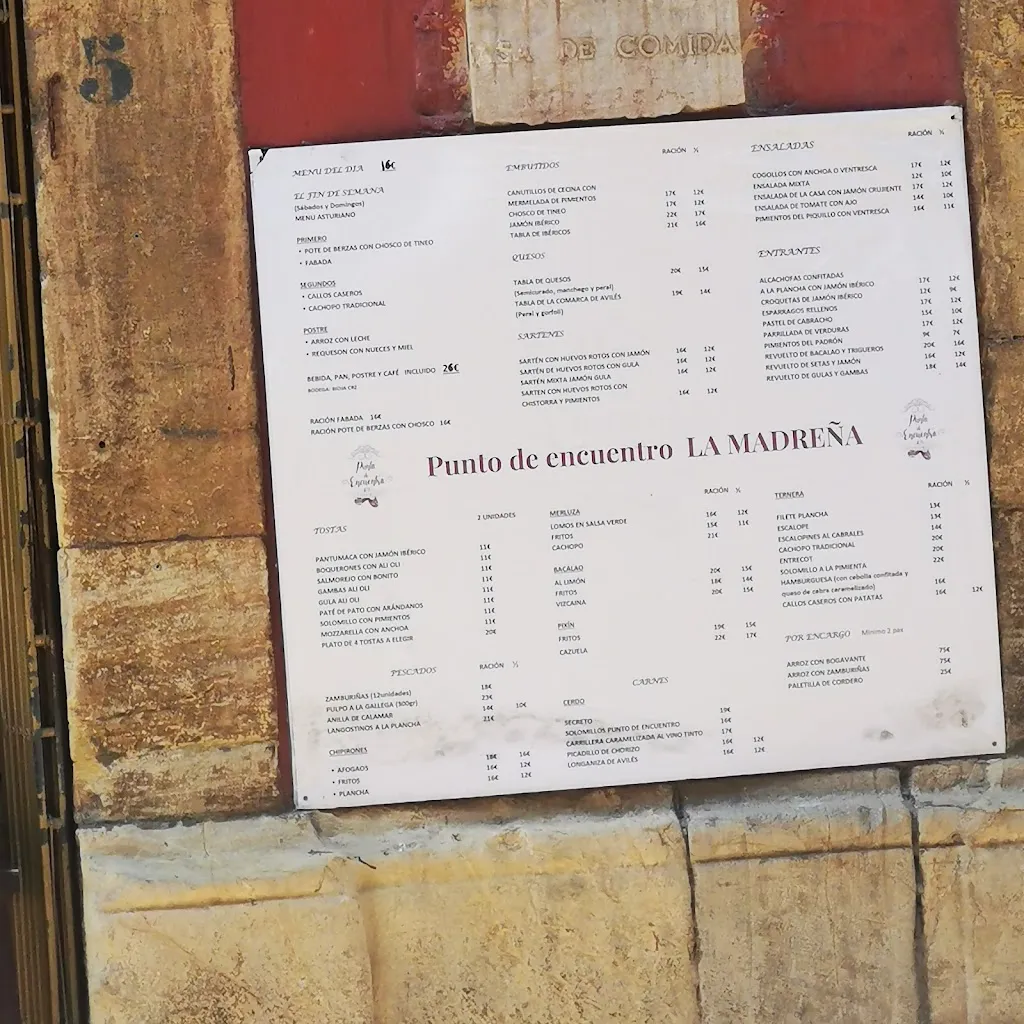 5
DE COMIDA
MENU DEL DIA 16€
EL FIN DE SEMANA
(Sábados y Domingos)
MENU ASTURIANO
PRIMERO
• POTE DE BERZAS CON CHOSCO DE TINEO
• FABADA
SEGUNDOS
• CALLOS CASEROS
• CACHOPO TRADICIONAL
POSTRE
• ARROZ CON LECHE
• REQUESON CON NUECES Y MIEL
BEBIDA, PAN, POSTRE Y CAFÉ INCLUIDO 26€
BODEGA: RIOVA CRZ
RACIÓN FABADA 16€
RACIÓN POTE DE BERZAS CON CHOSCO 16€
EMBUTIDOS RACIÓN ½
CANUTILLOS DE CECINA CON
MERMELADA DE PIMIENTOS 17€ 12€
CHOSCO DE TINEO 17€ 12€
JAMÓN IBÉRICO 22€ 17€
TABLA DE IBÉRICOS 21€ 16€
QUESOS
TABLA DE QUESOS 20€ 15€
(Semicurado, manchego y peral)
TABLA DE LA COMARCA DE AVILÉS 19€ 14€
(Peral y gorfoli)
SARTENES
SARTÉN CON HUEVOS ROTOS CON JAMÓN 16€ 12€
SARTÉN DE HUEVOS ROTOS CON GULA 16€ 12€
SARTÉN MIXTA JAMÓN GULA 16€ 12€
SARTEN CON HUEVOS ROTOS CON
CHISTORRA Y PIMIENTOS 16€ 12€
ENSALADAS RACIÓN ½
COGOLLOS CON ANCHOA O VENTRESCA 17€ 12€
ENSALADA MIXTA 12€ 10€
ENSALADA DE LA CASA CON JAMÓN CRUJIENTE 17€ 12€
ENSALADA DE TOMATE CON AJO 14€ 10€
PIMIENTOS DEL PIQUILLO CON VENTRESCA 16€ 11€
ENTRANTES
ALCACHOFAS CONFITADAS
A LA PLANCHA CON JAMÓN IBÉRICO 17€ 12€
CROQUETAS DE JAMÓN IBÉRICO 12€ 9€
ESPARRAGOS RELLENOS 17€ 12€
PASTEL DE CABRACHO 15€ 10€
PARRILLADA DE VERDURAS 17€ 12€
PIMIENTOS DEL PADRÓN 9€ 7€
REVUELTO DE BACALAO Y TRIGUEROS 20€ 16€
REVUELTO DE SETAS Y JAMÓN 16€ 12€
REVUELTO DE GULAS Y GAMBAS 18€ 14€
Punto de Encuentro
Punto de encuentro LA MADREÑA
Punto de Encuentro
TOSTAS 2 UNIDADES
PANTUMACA CON JAMÓN IBÉRICO 11€
BOQUERONES CON ALI OLI 11€
SALMOREJO CON BONITO 11€
GAMBAS ALI OLI 11€
GULA ALI OLI 11€
PATÉ DE PATO CON ARÁNDANOS 11€
SOLOMILLO CON PIMIENTOS 11€
MOZZARELLA CON ANCHOA 11€
PLATO DE 4 TOSTAS A ELEGIR 20€
PESCADOS RACIÓN ½
ZAMBURIÑAS (12unidades) 18€
PULPO A LA GALLEGA (300gr) 23€
ANILLA DE CALAMAR 14€ 10€
LANGOSTINOS A LA PLANCHA 21€
CHIPIRONES
• AFOGAOS 18€ 16€
• FRITOS 16€ 12€
• PLANCHA 16€ 12€
RACIÓN ½
MERLUZA
LOMOS EN SALSA VERDE 16€ 12€
FRITOS 15€ 11€
CACHOPO 21€
BACALAO
AL LIMÓN 20€ 15€
FRITOS 18€ 14€
VIZCAINA 20€ 15€
PIXÍN
FRITOS 19€ 15€
CAZUELA 22€ 17€
CARNES
CERDO
SECRETO 19€
SOLOMILLOS PUNTO DE ENCUENTRO 16€
CARRILLERA CARAMELIZADA AL VINO TINTO 17€
PICADILLO DE CHORIZO 16€ 12€
LONGANIZA DE AVILÉS 16€ 12€
TERNERA RACIÓN ½
FILETE PLANCHA 13€
ESCALOPE 13€
ESCALOPINES AL CABRALES 14€
CACHOPO TRADICIONAL 20€
ENTRECOT 20€
SOLOMILLO A LA PIMIENTA 22€
HAMBURGUESA (con cebolla confitada y
queso de cabra caramelizado) 16€
CALLOS CASEROS CON PATATAS 16€ 12€
POR ENCARGO Mínimo 2 pax
ARROZ CON BOGAVANTE 75€
ARROZ CON ZAMBURIÑAS 75€
PALETILLA DE CORDERO 25€